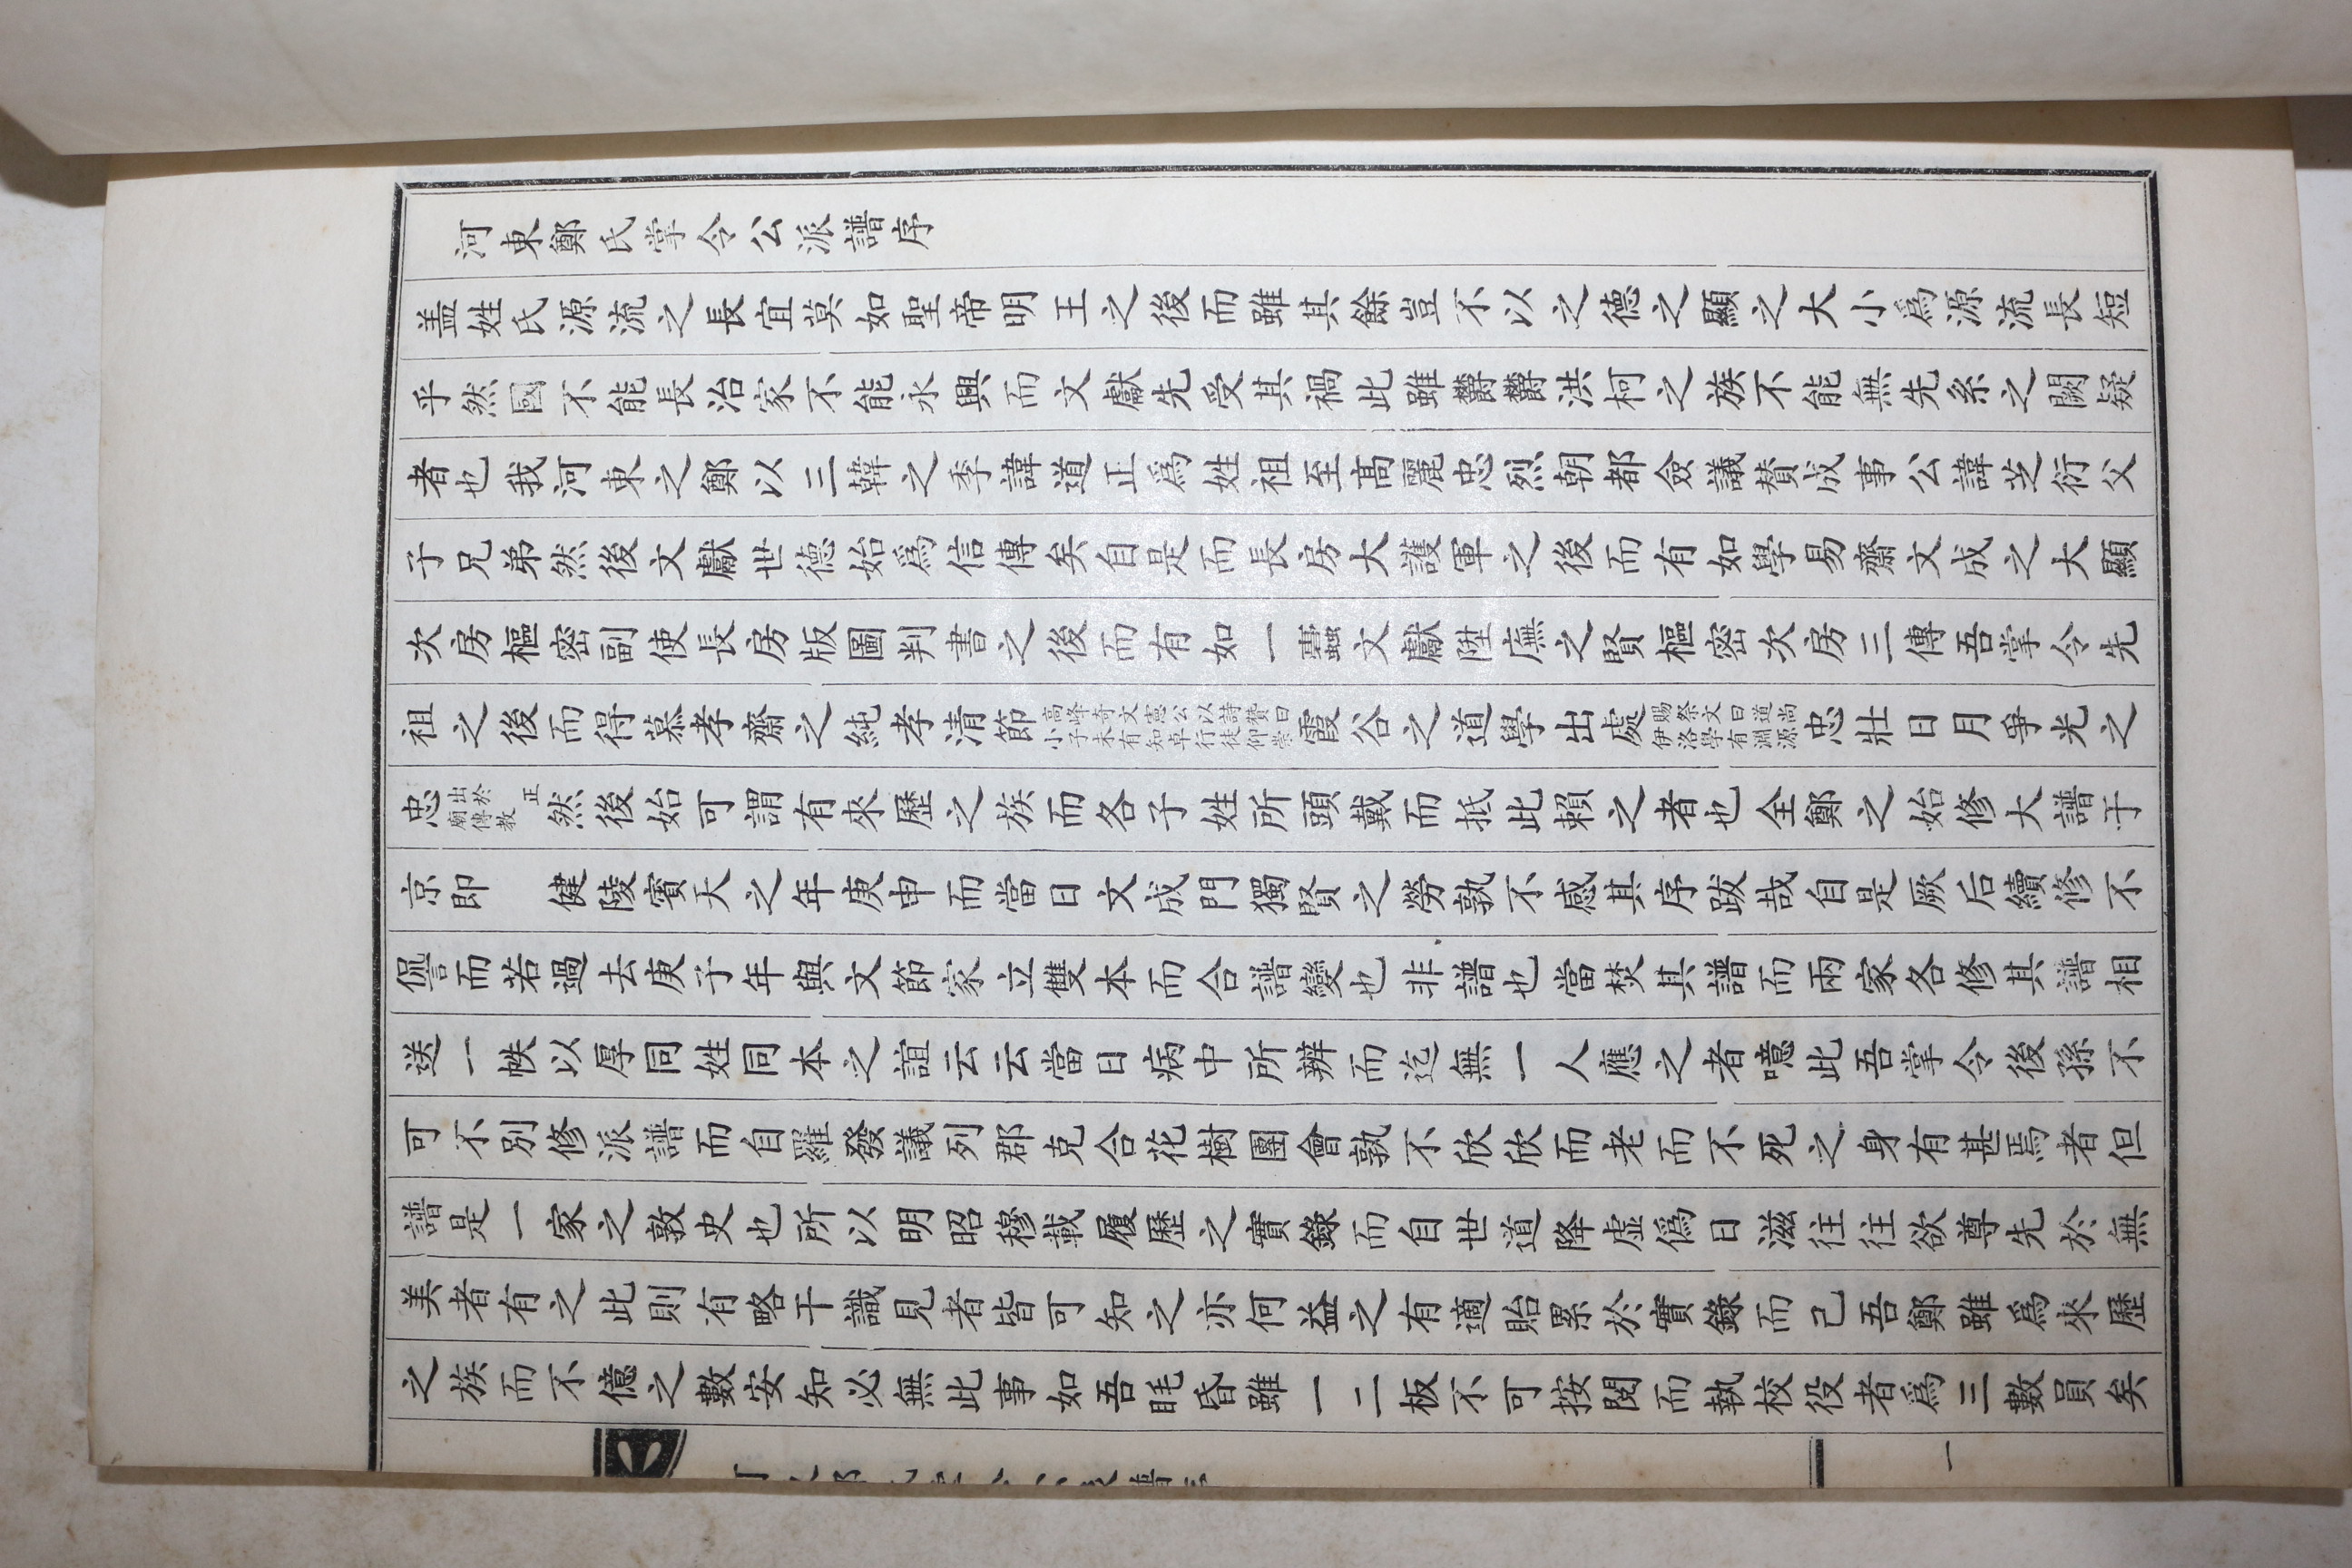 河東鄭氏掌令公派譜序
盖姓氏源流之長宜莫如聖帝明王之後而雖其餘豈不以之德之顯之大小爲源流長短
乎然國不能長治家不能永興而文獻先受其禍此雖欝欝洪柯之族不能無先系之闕疑
者也我河東之鄭以三韓之季諱道正爲姓祖至高麗忠烈朝都僉議贊成事公諱芝衍父
子兄弟然後文獻世德始爲信傳矣自是而長房大護軍之後而有如學易齋文成之大顯
次房樞密副使長房版圖判書之後而有如一蠹文獻陞廡之賢樞密次房三傳吾掌令先
祖之後而得慕孝齋之純孝清節高峰奇文憲公以詩贊曰小子未有知卓行徒仰崇霞谷之道學出處賜祭文曰道尚伊洛學有淵源忠壯日月爭光之
忠出於正廟傳教然後始可謂有來歷之族而各子姓所頭戴而抵此賴之者也全鄭之始修大譜于
京即 健陵賓天之年庚申而當日文成門獨賢之勞孰不感其序跋哉自是厥后續修不
儘而若過去庚子年與文節家立雙本而合譜變也非譜也當焚其譜而兩家各修其譜相
送一帙以厚同姓同本之誼云云當日病中所辨而迄無一人應之者噫此吾掌令後孫不
可不別修派譜而自羅發議列郡克合花樹團會孰不欣欣而老而不死之身有甚焉者但
譜是一家之敦史也所以明昭穆載履歷之實錄而自世道降虛僞日滋往往欲尊先於無
美者有之此則有略干識見者皆可知之亦何益之有適貽累於實錄而己吾鄭雖爲來歷
之族而不億之數安知必無此事如吾眊昏雖一二板不可按閱而執校役者爲三數員矣
一